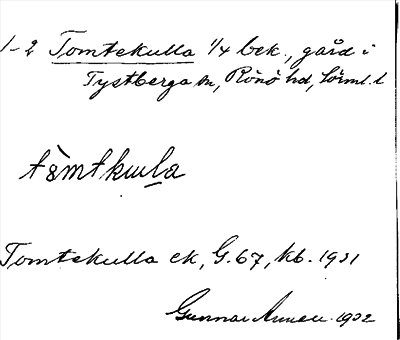 1-2 Tomtekulla 1/4 bek., gård i
Tystberga sn, Rönö hd, Sörml. l
tòmtkulla
Tomtekulla ek, G. 67, kb. 1931
Gunnar Annell 1932